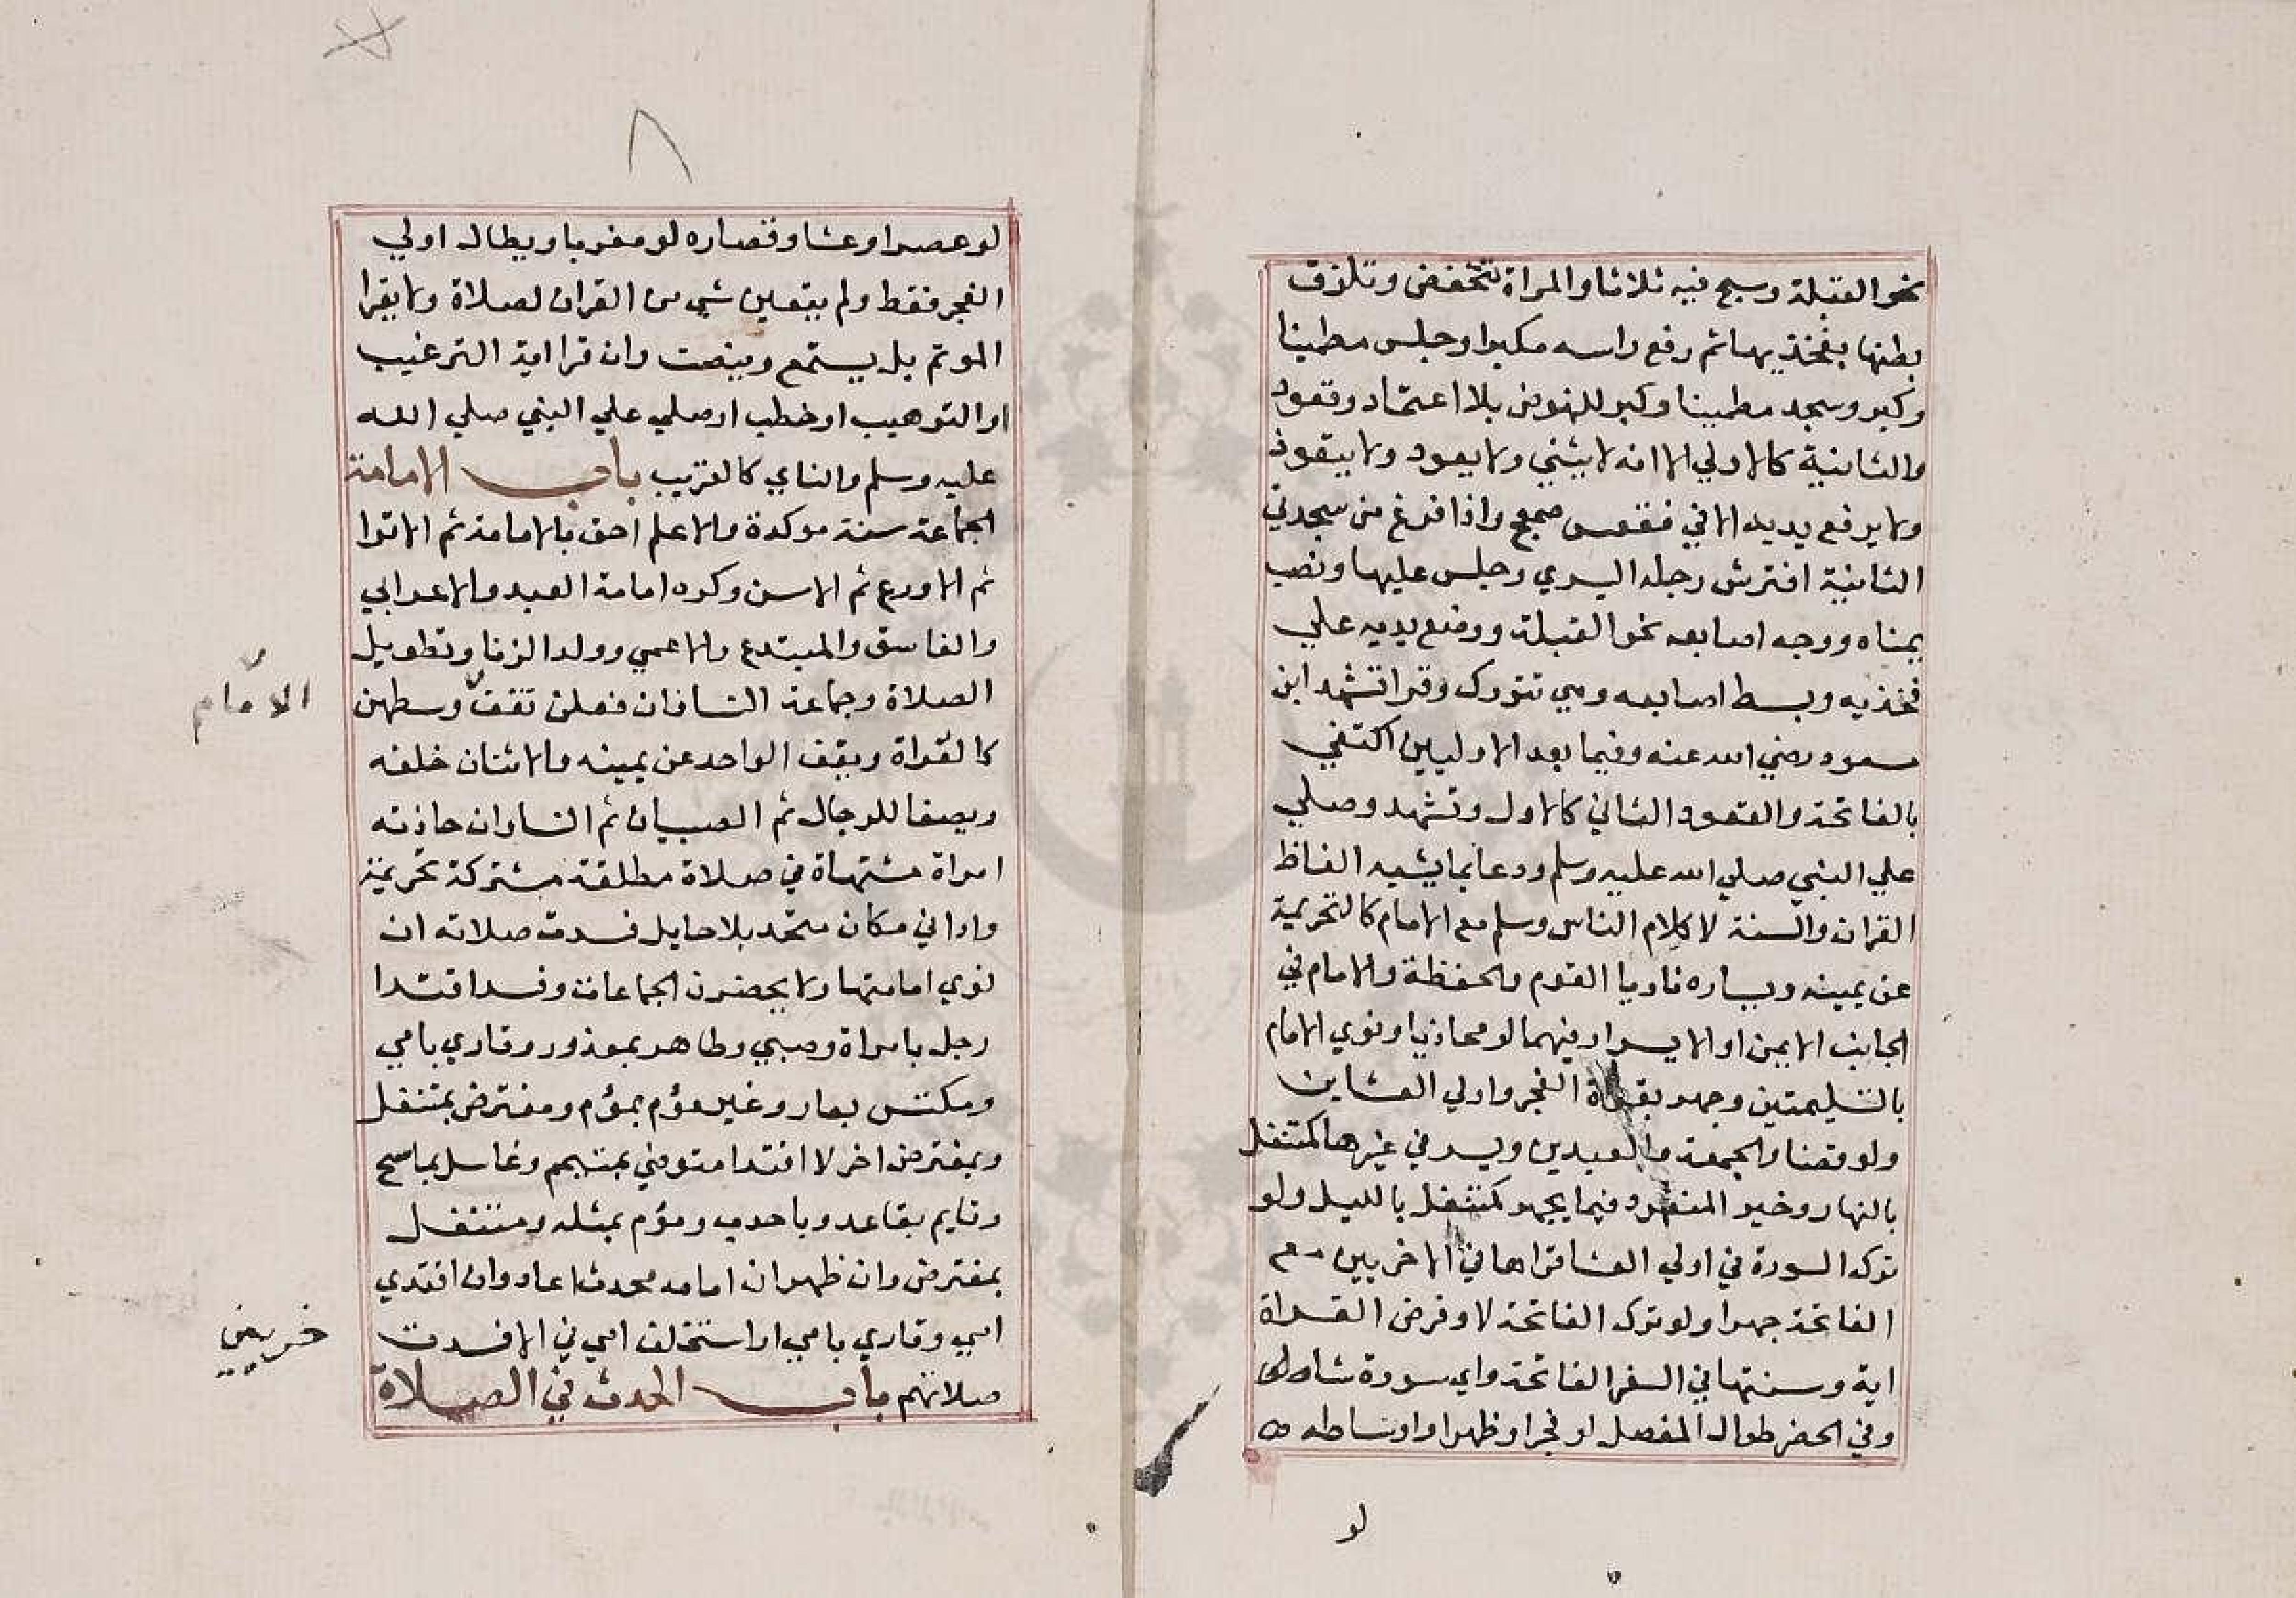 نحو القبلة وسبح فيه ثلاثا والمراة تنخفض وتلزق
بطنها بفخذيها ثم رفع راسه مكبرا وجلس مطمينا
وكبر وسجد مطمينا وكبر للنهوض بلا اعتماد وقعود
والثانية كالاولي الا انه لا يثني ولا يعود ولا يتعوذ
ولا يرفع يديه الا في فقعس صمعج واذا فرغ من سجدتي
الثانية افترش رجله اليسري وجلس عليها ونصب
يمناه ووجه اصابعه نحو القبلة ووضع يديه علي
فخذيه وبسط اصابعه وهي تتورك وقرا تشهد ابن
مسعود رضي الله عنه وفيما بعد الاوليين اكتفي
بالفاتحة والقعود الثاني كالاول وتشهد وصلي
علي النبي صلي الله عليه وسلم ودعا بما يشبه الفاظ
القران والسنة لا كلام الناس وسلم مع الامام كالتحريمة
عن يمينه ويساره ناويا القوم والحفظة والامام في
الجانب الايمن او الايسر او فيهما لو محاذيا ونوي الامام
بالتسليمتين وجهر بقراة الفجر واولي العشاين
ولو قضا والجمعة والعيدين ويسر في غيرها كمتنفل
بالنهار وخير المنفرد فيما يجهر كمتنفل بالليل ولو
ترك السورة في اولي العشا قراها في الاخريين مع
الفاتحة جهرا ولو ترك الفاتحة لا وفرض القراة
اية وسنتها في السفر الفاتحة واي سورة شا
وفي الحضر طوال المفصل لو فجرا او ظهرا واوساطه
لو
٨
لو عصرا او عشا وقصاره لو مغربا ويطال اولي
الفجر فقط ولم يتعين شي من القران لصلاة ولا يقرا
الموتم بل يستمع وينصت وان قرا اية الترغيب
او الترهيب او خطب او صلي علي النبي صلي الله
عليه وسلم والناي كالقريب باب الامامة
الجماعة سنة موكدة والاعلم احق بالامامة ثم الاقرا
ثم الاورع ثم الاسن وكره امامة العبد والاعرابي
والفاسق والمبتدع والاعمي وولد الزنا وتطويل
الصلاة وجماعة النسا فان فعلن تقف وسطهن
الامام
كالعراة ويقف الواحد عن يمينه والاثنان خلفه
ويصف الرجال ثم الصبيان ثم النسا وان حاذته
امراة مشتهاة في صلاة مطلقة مشتركة تحريمة
وادا في مكان متحد بلا حايل فسدت صلاته ان
نوي امامتها ولا يحضرن الجماعات وفسد اقتدا
رجل بامراة وصبي وطاهر بمعذور وقاري بامي
ومكتس بعار وغير مؤم بمؤم ومفترض بمتنفل
وبمفترض اخر لا اقتدا متوضي بمتيمم وغاسل بماسح
وقايم بقاعد وباحدب ومؤم بمثله ومتنفل
بمفترض وان ظهر ان امامه محدث اعاد وان اقتدي
امي وقاري بامي او استخلف امي في الا فسدت
خريين
صلاتهم باب الحدث في الصلاة